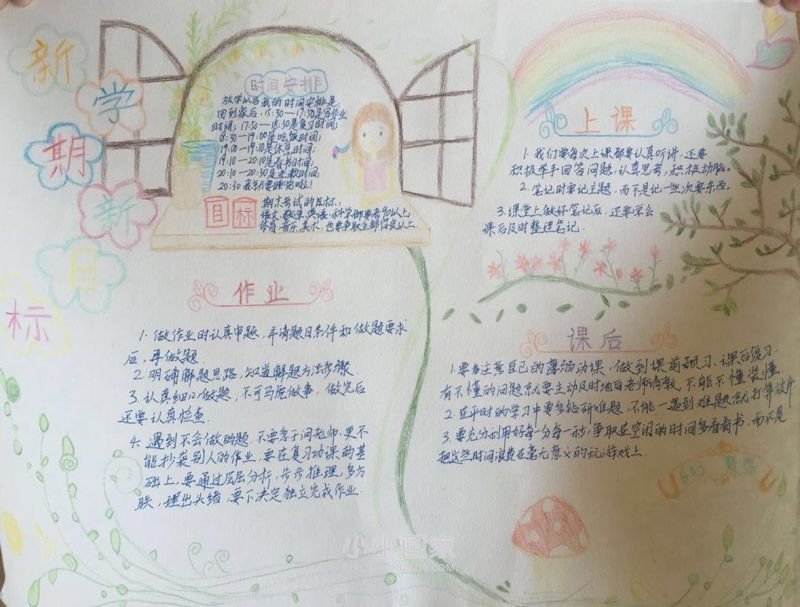 新学期新目标
时间安排
放学以后我的时间安排是:
回到家后,15:30—17:30是写作业
时间;17:30—18:30是复习时间;
18:30—19:00是吃饭时间;
19:00—19:10是休息时间;
19:10—20:10是看书时间;
20:10—20:30是洗漱时间;
20:30我就要睡觉啦!
目标
期末考试的目标:
语文、数学、英语、科学都要考90以上
体育、音乐、美术,也要争取全部优良以上
上课
1. 我们要每次上课都要认真听讲,还要
积极举手回答问题,认真思考,积极动脑。
2. 笔记时要记主题,而不是记一些次要东西。
3. 课堂上做好笔记后,还要学会
课后及时整理笔记.
作业
1. 做作业时认真审题,弄清题目条件和做题要求
后,再做题
2. 明确解题思路,知道解题方法步骤
3. 认真细心做题,不可马虎做事,做完后
还要认真检查
4. 遇到不会做的题,不要急于问老师,更不
能抄袭别人的作业,要在复习功课的基
础上,要通过层层分析,步步推理,多方
联,理出头绪,要下决定独立完成作业
课后
1. 要多注意自己的薄弱功课,做到课前预习、课后复习,
有不懂的问题就要主动及时地向老师请教,不能不懂装懂
2. 在平时的学习中要多钻研难题,不能一遇到难题就打算放弃
3. 要充分利用好每一分每一秒,争取在空闲的时间多看看书,而不是
把这些时间浪费在毫无意义的玩游戏上
603
小小画家